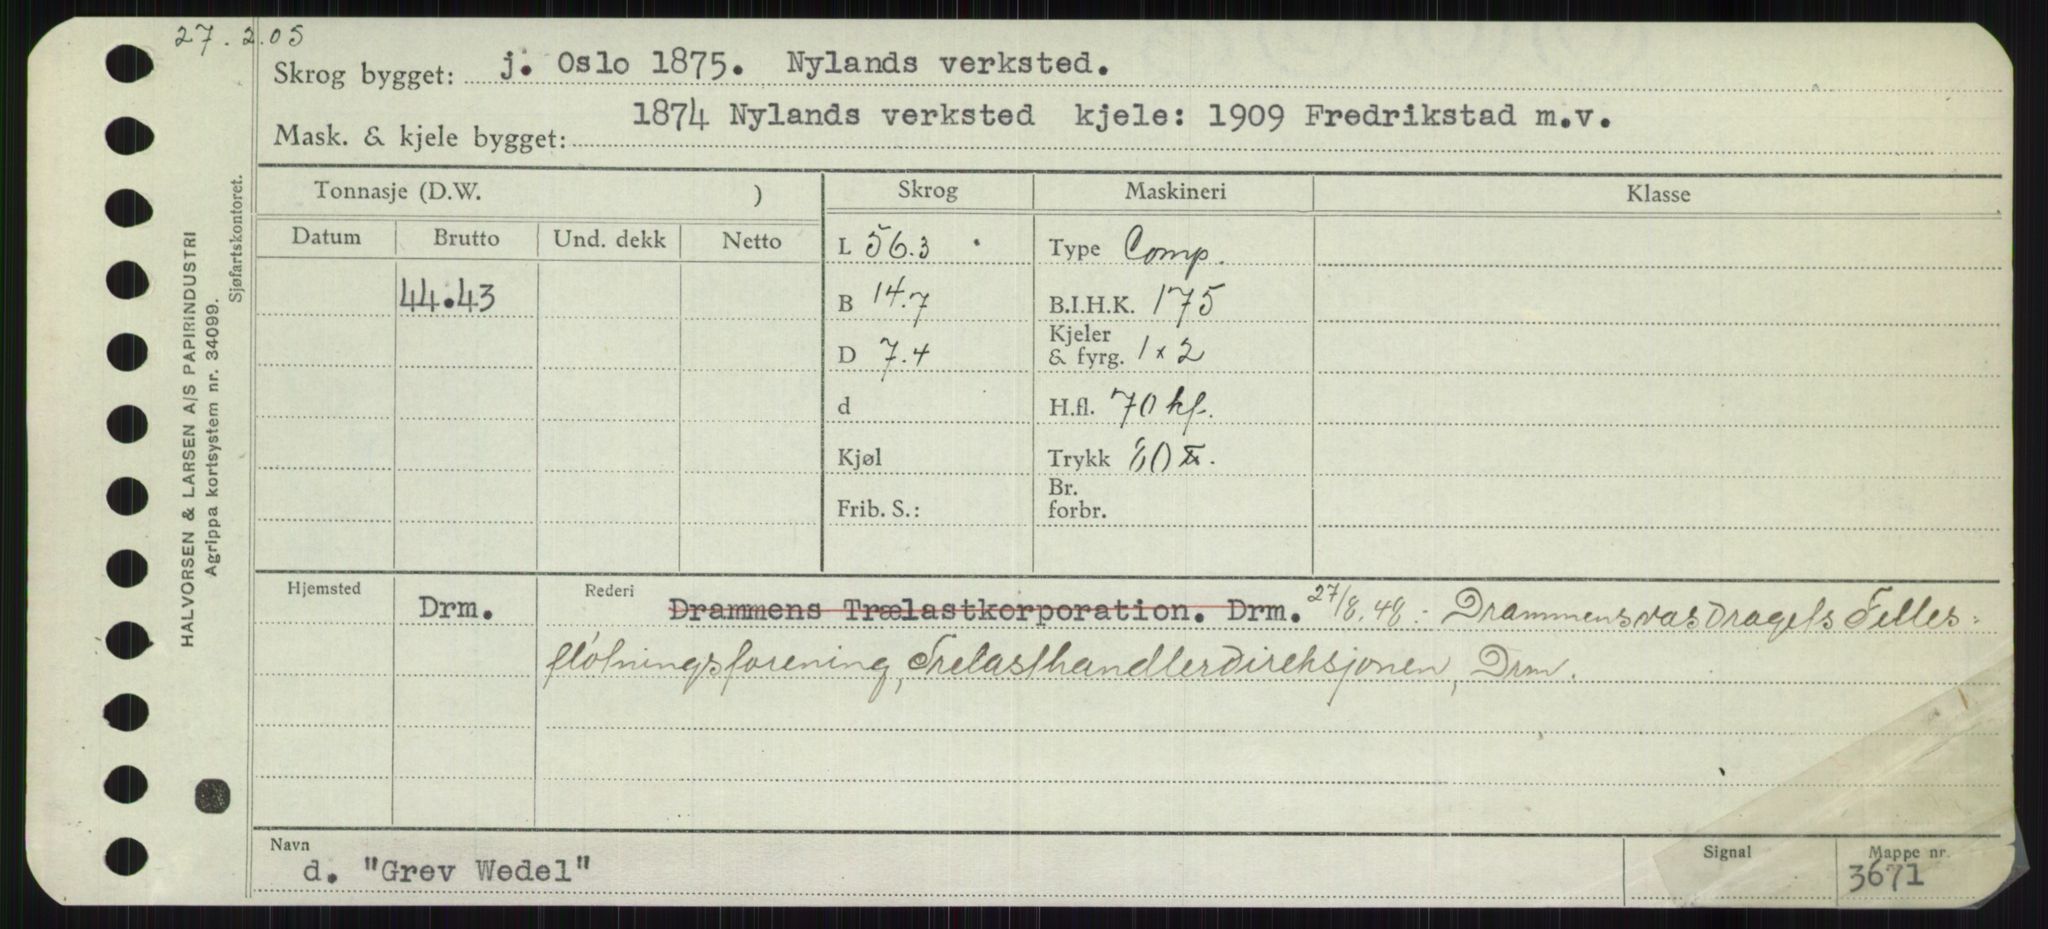 27.2.05
Skrog bygget: j. Oslo 1875. Nylands verksted.
Mask. & kjele bygget: 1874 Nylands verksted kjele: 1909 Fredrikstad m.v.
HALVORSEN & LARSEN A/S PAPIRINDUSTRI
Agrippa kortsystem nr. 34099.
Sjøfartskontoret.
Tonnasje (D.W. ) Skrog Maskineri Klasse
Datum Brutto Und. dekk Netto
L 56.3 Type Comp.
44.43 B 14.7 B.I.H.K. 175
D 7.4 Kjeler & fyrg. 1 x 2
d H.fl. 70 kf.
Kjøl Trykk 80
Frib. S.: Br. forbr.
Hjemsted Rederi
Drm. Drammens Trælastkorporation. Drm. 27/8.48: Drammensvasdragets Felles-
fløtningsforening, Trelasthandlerdireksjonen, Drm.
Navn Signal Mappe nr.
d. "Grev Wedel" 3671